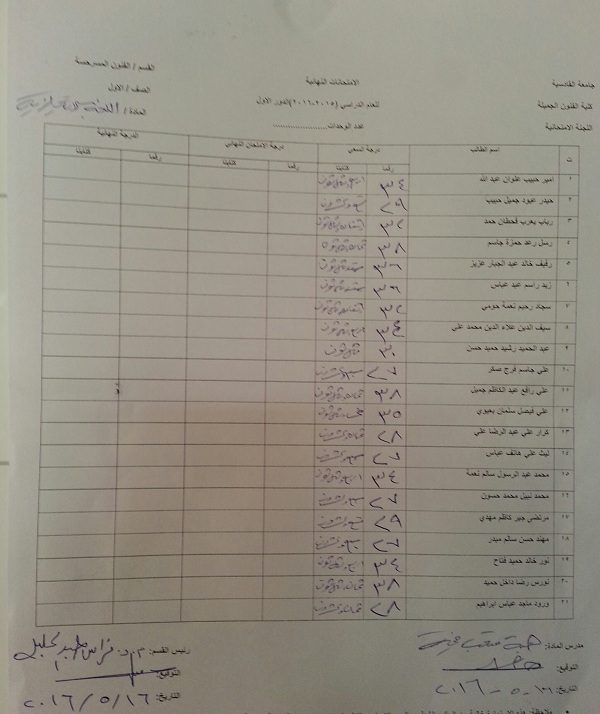 جامعة القادسية
كلية الفنون الجميلة
اللجنة الامتحانية
الامتحانات النهائية
للعام الدراسي (٢٠١٥-٢٠١٦) الدور الاول
عدد الوحدات......................
القسم / الفنون المسرحية
الصف / الاول
المادة / اللغة
ت اسم الطالب درجة السعي درجة الامتحان النهائي الدرجة النهائية
رقما كتابتا رقما كتابتا رقما كتابتا
١ امير حبيب علوان عبد الله ٣٤ اربع وثلاثون
٢ حيدر عبود جميل حبيب ٢٩ تسع وعشرون
٣ رباب يعرب قحطان حمد ٣٢ اثنان وثلاثون
٤ رسل رعد حمزة جاسم ٣٨ ثمان وثلاثون
٥ رفيف خالد عبد الجبار عزيز ٣٦ ستة وثلاثون
٦ زيد راسم عبد عباس ٣٦ ستة وثلاثون
٧ سجاد رحيم نعمة حومي ٣٢ اثنان وثلاثون
٨ سيف الدين علاء الدين محمد علي ٣٤ اربع وثلاثون
٩ عبد الحميد رشيد حميد حسن ٣٠ ثلاثون
١٠ علي جاسم فرج صكر ٢٧ سبع وعشرون
١١ علي رافع عبد الكاظم جميل ٣٨ ثمان وثلاثون
١٢ علي فيصل سلمان بعيوي ٣٥ خمس وثلاثون
١٣ كرار علي عبد الرضا علي ٢٨ ثمان وعشرون
١٤ ليث علي هاتف عباس ٢٧ سبع وعشرون
١٥ محمد عبد الرسول سالم نعمة ٣٤ اربع وثلاثون
١٦ محمد نبيل محمد حسون ٢٧ سبع وعشرون
١٧ مرتضى جبر كاظم مهدي ٢٩ تسع وعشرون
١٨ مهند حسن سالم ٢٧ سبع وعشرون
١٩ نور خالد حميد فتاح ٣٤ اربع وثلاثون
٢٠ نورس رضا داخل حميد ٣٨ ثمان وثلاثون
٢١ ورود ماجد عباس ابراهيم ٢٨ ثمان وعشرون
مدرس المادة: هبة
التوقيع:
التاريخ: ١٦-٥-٢٠١٦
رئيس القسم: م.د. فراس
التوقيع:
التاريخ: ١٦/٥/٢٠١٦